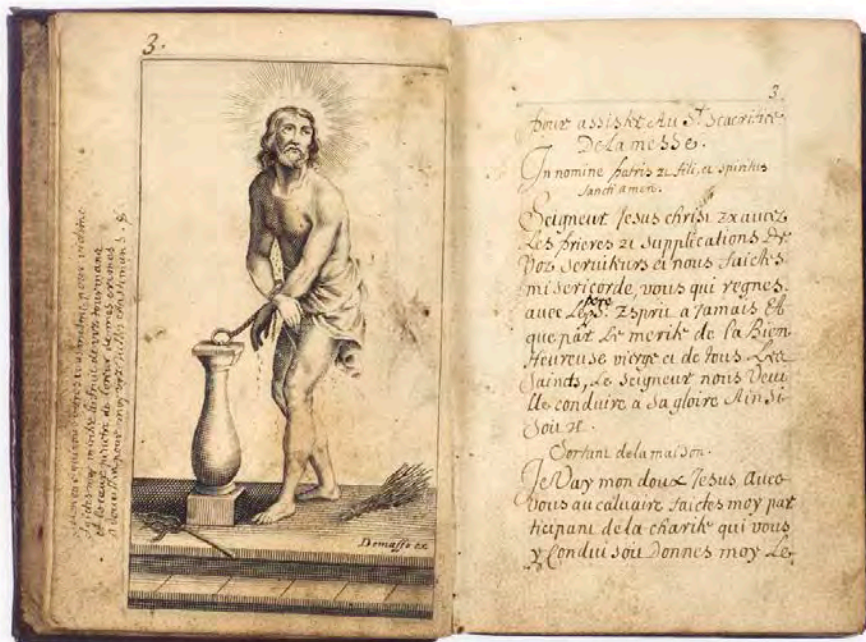 3.
Demasso ex
3.
pour assister Au St. Sacrifice
De la messe.
In nomine patris et fili, et spiritus
sancti amen.
Seigneur Jesus christ exaucez
Les prieres et supplications de
Voz serviteurs et nous faictes
misericorde, vous qui regnes
avec Le pere St. Esprit a Jamais Et
que par Le merite de la Bien
Heureuse vierge et de tous Les
Saincts, Le Seigneur nous Veui
lle conduire a sa gloire Ainsi
soit il.
Sortant de la maison.
Je Vay mon doux Jesus Avec
vous au calvaire faictes moy par
ticipant de la charité qui vous
y Conduisoit Donnes moy Le